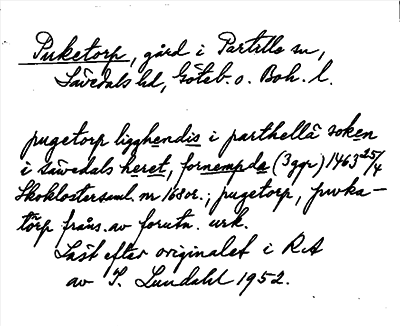 Puketorp, gård i Partille sn,
Sävedals hd, Göteb. o. Boh. l.
pugetorp ligghendis i parthellä soken
i säwedals heret, fornempda (3 ggr) 1463 25/4
Skoklostersaml. nr 168 or.; pugetorp, puvka-
törp fråns. av forutn. urk.
Läst efter originalet i RA
av I. Lundahl 1952.